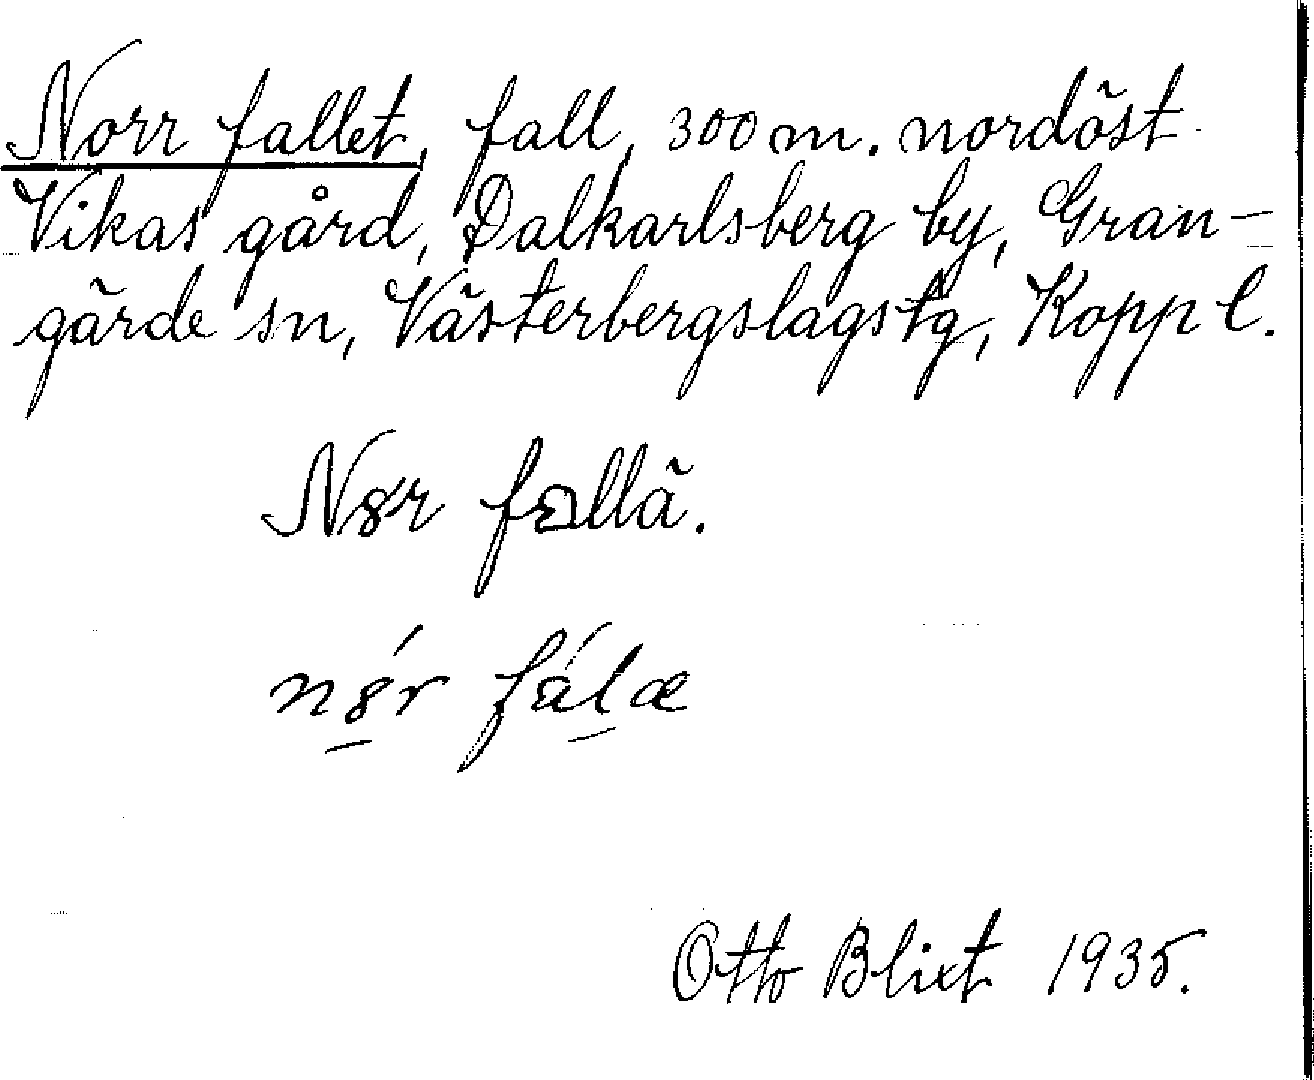 Norr fallet, fall, 300 m. nordöst
Vikas gård, Dalkarlsberg by, Gran-
gärde sn, Västerbergslags tg, Kopp l.
Nɤr fallä.
nɤ́r fálæ
Otto Blixt 1935.